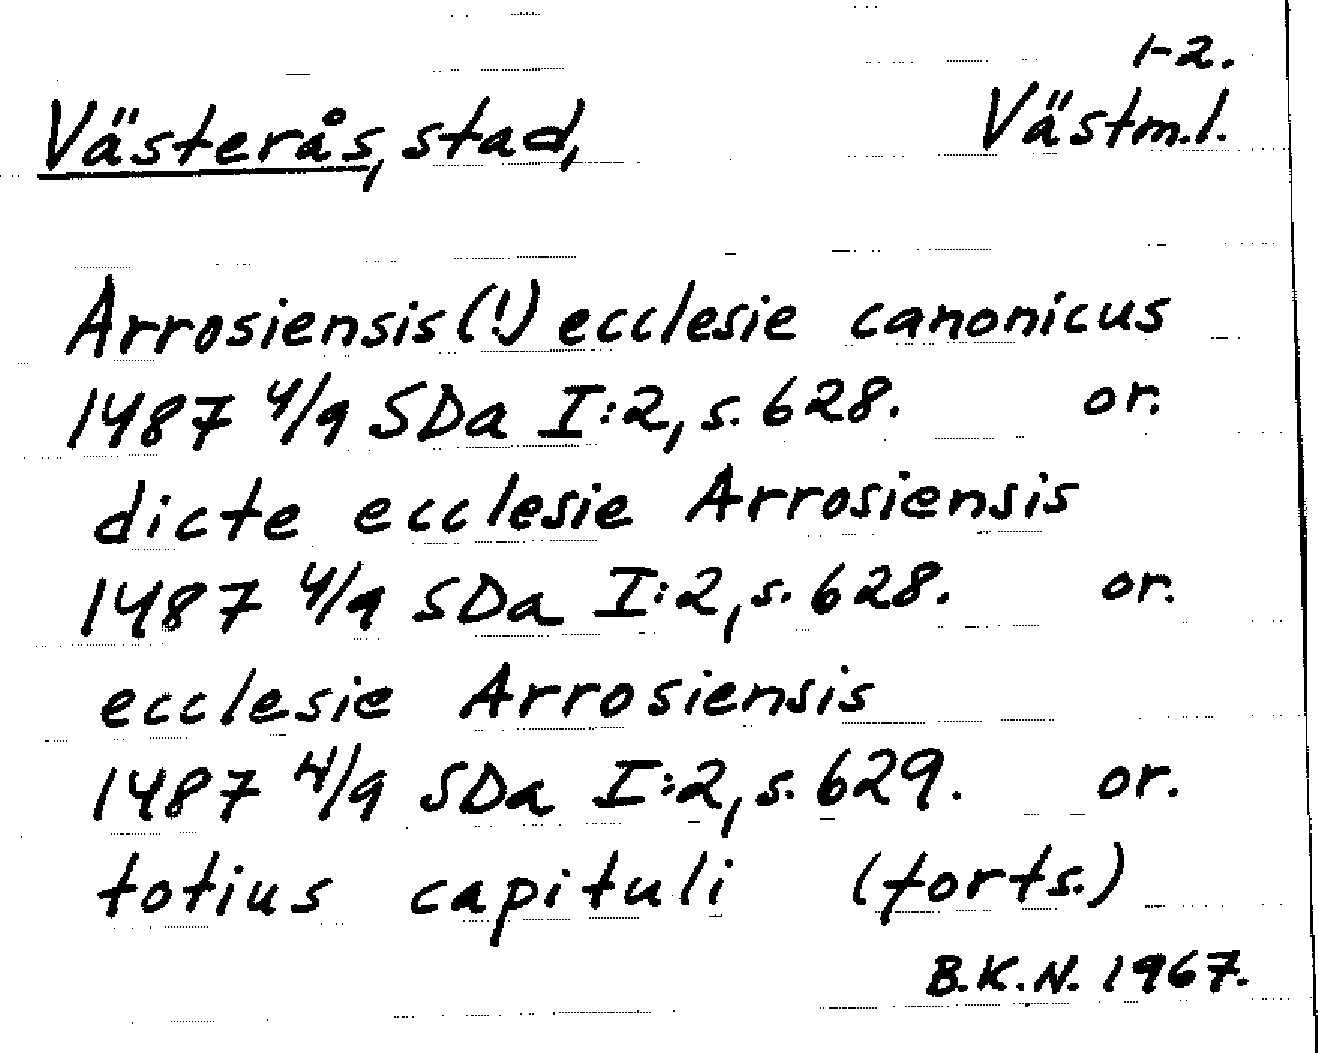 1-2.
Västerås, stad, Västm.l.
Arrosiensis (!) ecclesie canonicus
1487 4/9 SDa I:2, s. 628. or.
dicte ecclesie Arrosiensis
1487 4/9 SDa I:2, s. 628. or.
ecclesie Arrosiensis
1487 4/9 SDa I:2, s. 629. or.
totius capituli (forts.)
B.K.N. 1967.